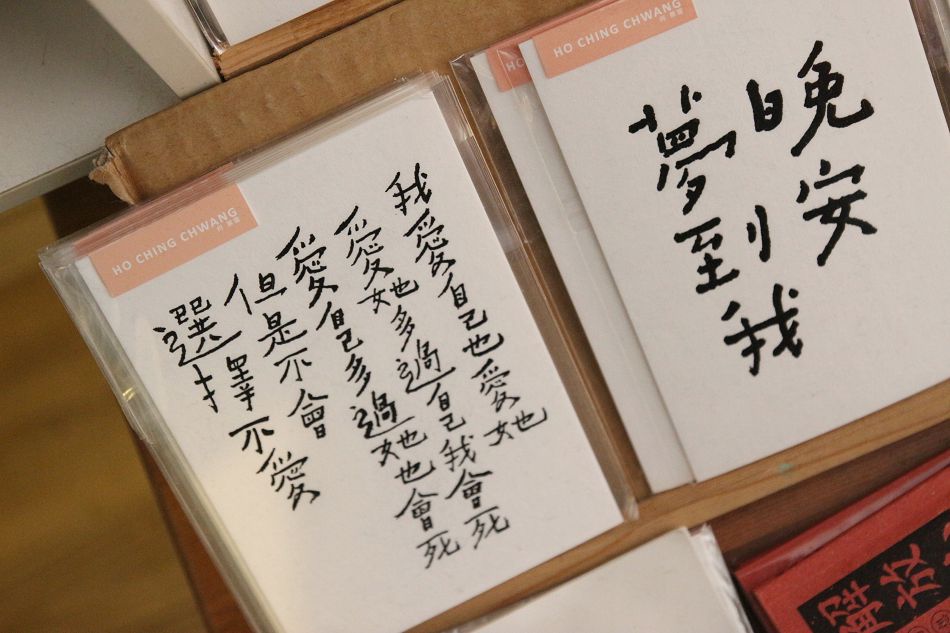 HO CHING CHWANG
何景窗
我愛自己也愛她
愛她多過自己我會死
愛自己多過她也會死
但是不會
選擇不愛
HO CHING CHWANG
何景窗
晚安
夢到我
HO
解放